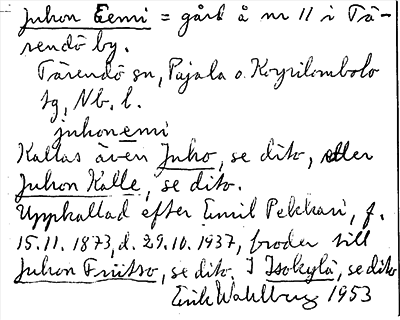 Juhon Eemi = gård å nr 11 i Tä-
rendö by.
Tärendö sn, Pajala o. Korpilombolo
tg, Nb. l.
juhonemi
Kallas även Juho, se dito, eller
Juhon Kalle, se dito.
Uppkallad efter Emil Pekkari, f.
15.11.1873, d. 29.10.1937, broder till
Juhon Friitso, se dito. I Isokylä, se dito
Erik Wahlberg 1953